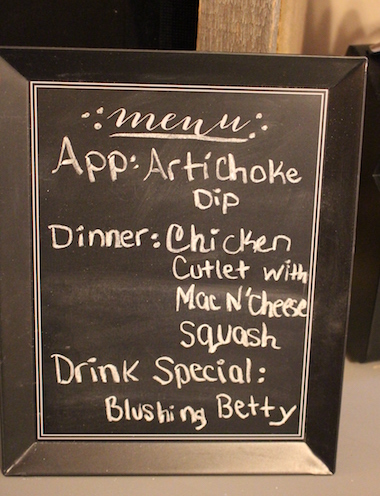 menu
App: Artichoke
Dip
Dinner: Chicken
Cutlet with
Mac N' Cheese
Squash
Drink Special:
Blushing Betty